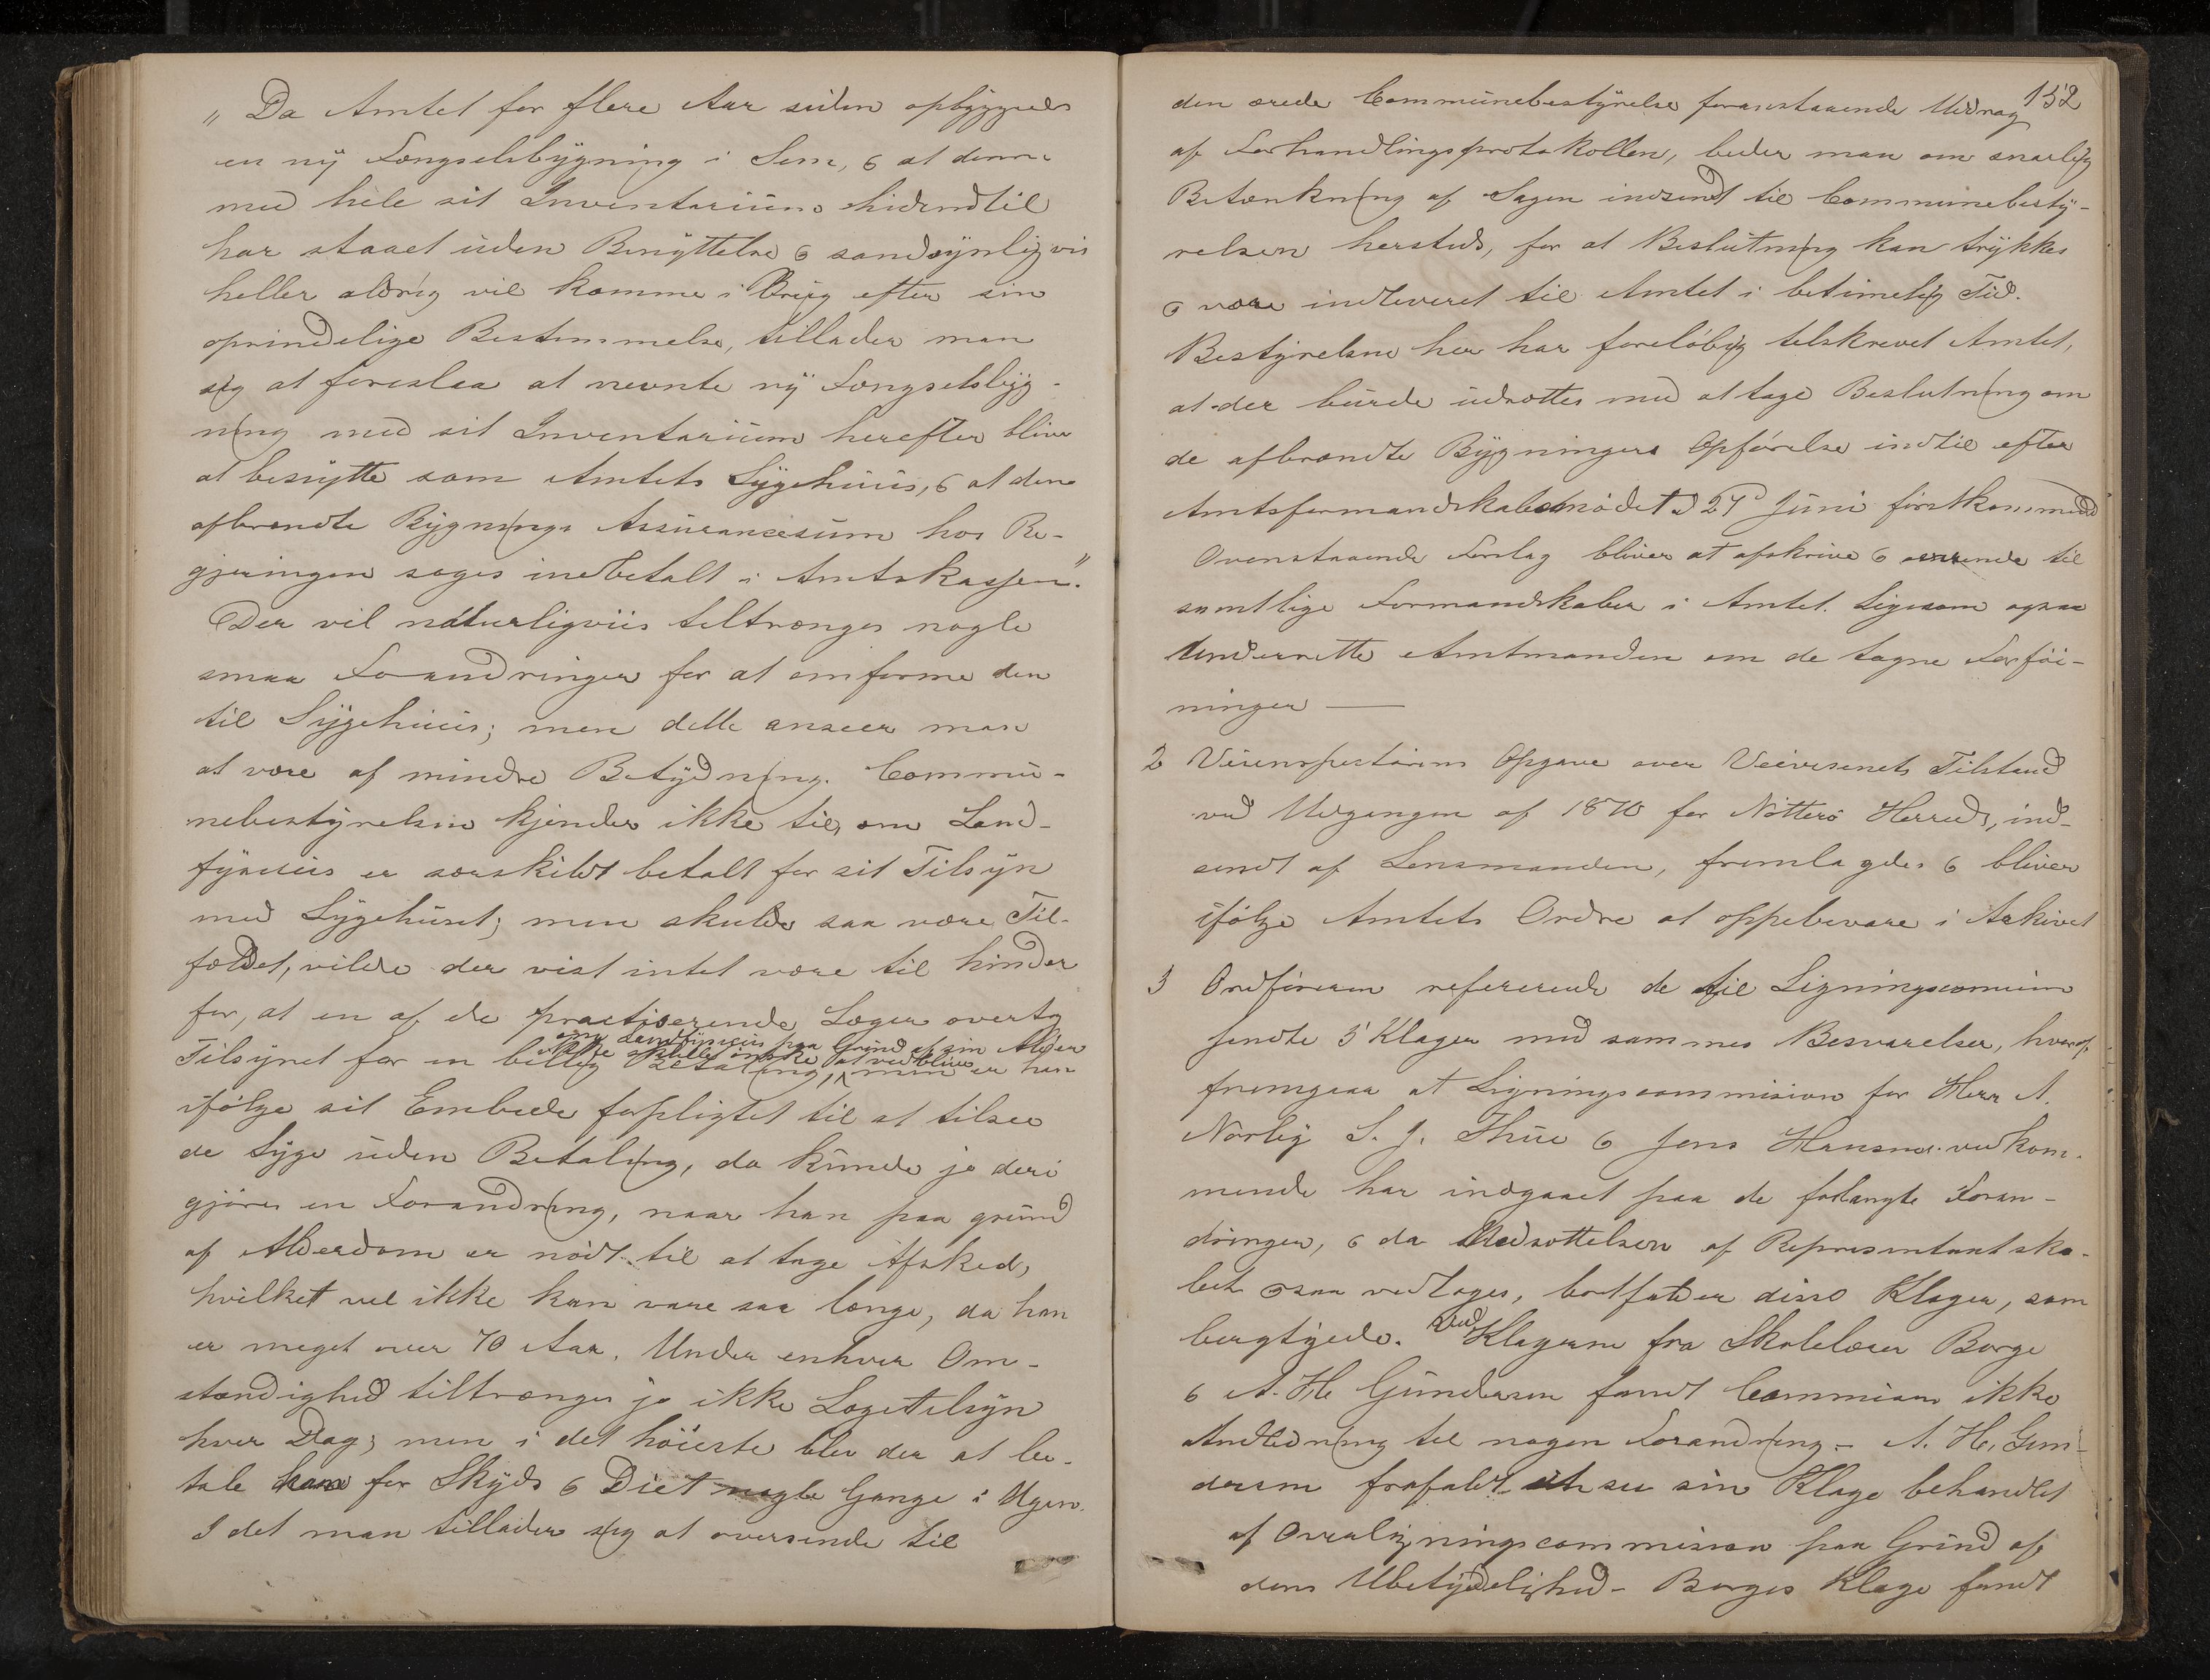 „Da Amtet for flere Aar siden opbyggede
en ny Fængselsbygning i Sem, & at denne
med hele sit Inventarium hidindtil
har staaet uden Benyttelse & sandsynligvis
heller aldrig vil komme i Brug efter sin
oprindelige Bestemmelse, tillader man
sig at foreslaa at nevnte ny Fængselsbyg-
ning med sit Inventarium herefter bliver
at benytte som Amtets Sygehuus, & at den
afbrændte Bygnings Assurancesum hos Re-
gjeringen søges indbetalt i Amtskassen."
Der vil naturligviis tiltrænges nogle
smaa Forandringer for at omforme den
til Sygehuus; men dette anseer man
at være af mindre Betydning. Commu-
nebestyrelsen kjender ikke til, om Land-
fysicus er særskildt betalt for sit Tilsyn
med Sygehuset; men skulde saa være Til-
fældet, vilde der vist intet være til hinder
for, at en af de practiserende Læger overtog
om Landfysicus paa Grund af sin Alder
ikke skulde ønske at vedblive
Tilsynet for en billig Betaling, men er han
ifølge sit Embede forpligtet til at tilsee
de Syge uden Betaling, da kunde jo deri
gjøres en Forandring, naar han paa grund
af Alderdom er nødt til at tage Afsked,
hvilket vel ikke kan vare saa længe, da han
er meget over 70 Aar. Under enhver Om-
stændighed tiltrænges jo ikke Lægetilsyn
hver Dag; men i det høieste blev der at be-
tale ham for Skyds & Diet nogle Gange i Ugen.
I det man tillader sig at oversende til
152
den ærede Communebestyrelse foranstaaende Uddrag
af Forhandlingsprotokollen, beder man om snarlig
Betænkning af Sagen indsendt til Communebesty-
relsen hersteds, for at Beslutning kan trykkes
& være indleveret til Amtet i betimelig Tid.
Bestyrelsen her har foreløbig tilskrevet Amtet,
at der burde udsættes med at tage Beslutning om
de afbrændte Bygningers Opførelse indtil efter
Amtsformandskabsmødet d 27 Juni førstkommend
Ovenstaaende Forslag bliver at afskrive & oversende til
samtlige Formandskaber i Amtet. Ligesom ogsaa
underrette Amtmanden om de tagne Forføi-
ninger —
2 Veiinspectørens Opgave over Veivesenets Tilstand
ved Udgangen af 1870 for Nøtterø Herred, ind-
sendt af Lensmanden, fremlagdes & bliver
ifølge Amtets Ordre at oppebevare i Arkivet
3 Ordføreren refererede de til Ligningscomiion
sendte 5 Klager med sammes Besvarelser, hvoraf
fremgaar at Ligningscommision for Herr A.
Nørby S. J. Thue & Jens Hansens vedkom-
mende har indgaaet paa de forlangte Foran-
dringer, & da Nedsættelsen af Representantska-
bet osaa vedtages, bortfalder disse Klager, som
beretigede. Ved Klagerne fra Skolelærer Borge
& A. H. Gundersen fandt Commision ikke
Andledning til nogen Forandring – A. H. Gun-
dersen frafaldt at see sin Klage behandlet
af Overligningscommision paa Grund af
dens Ubetydelighed – Borges Klage fandt